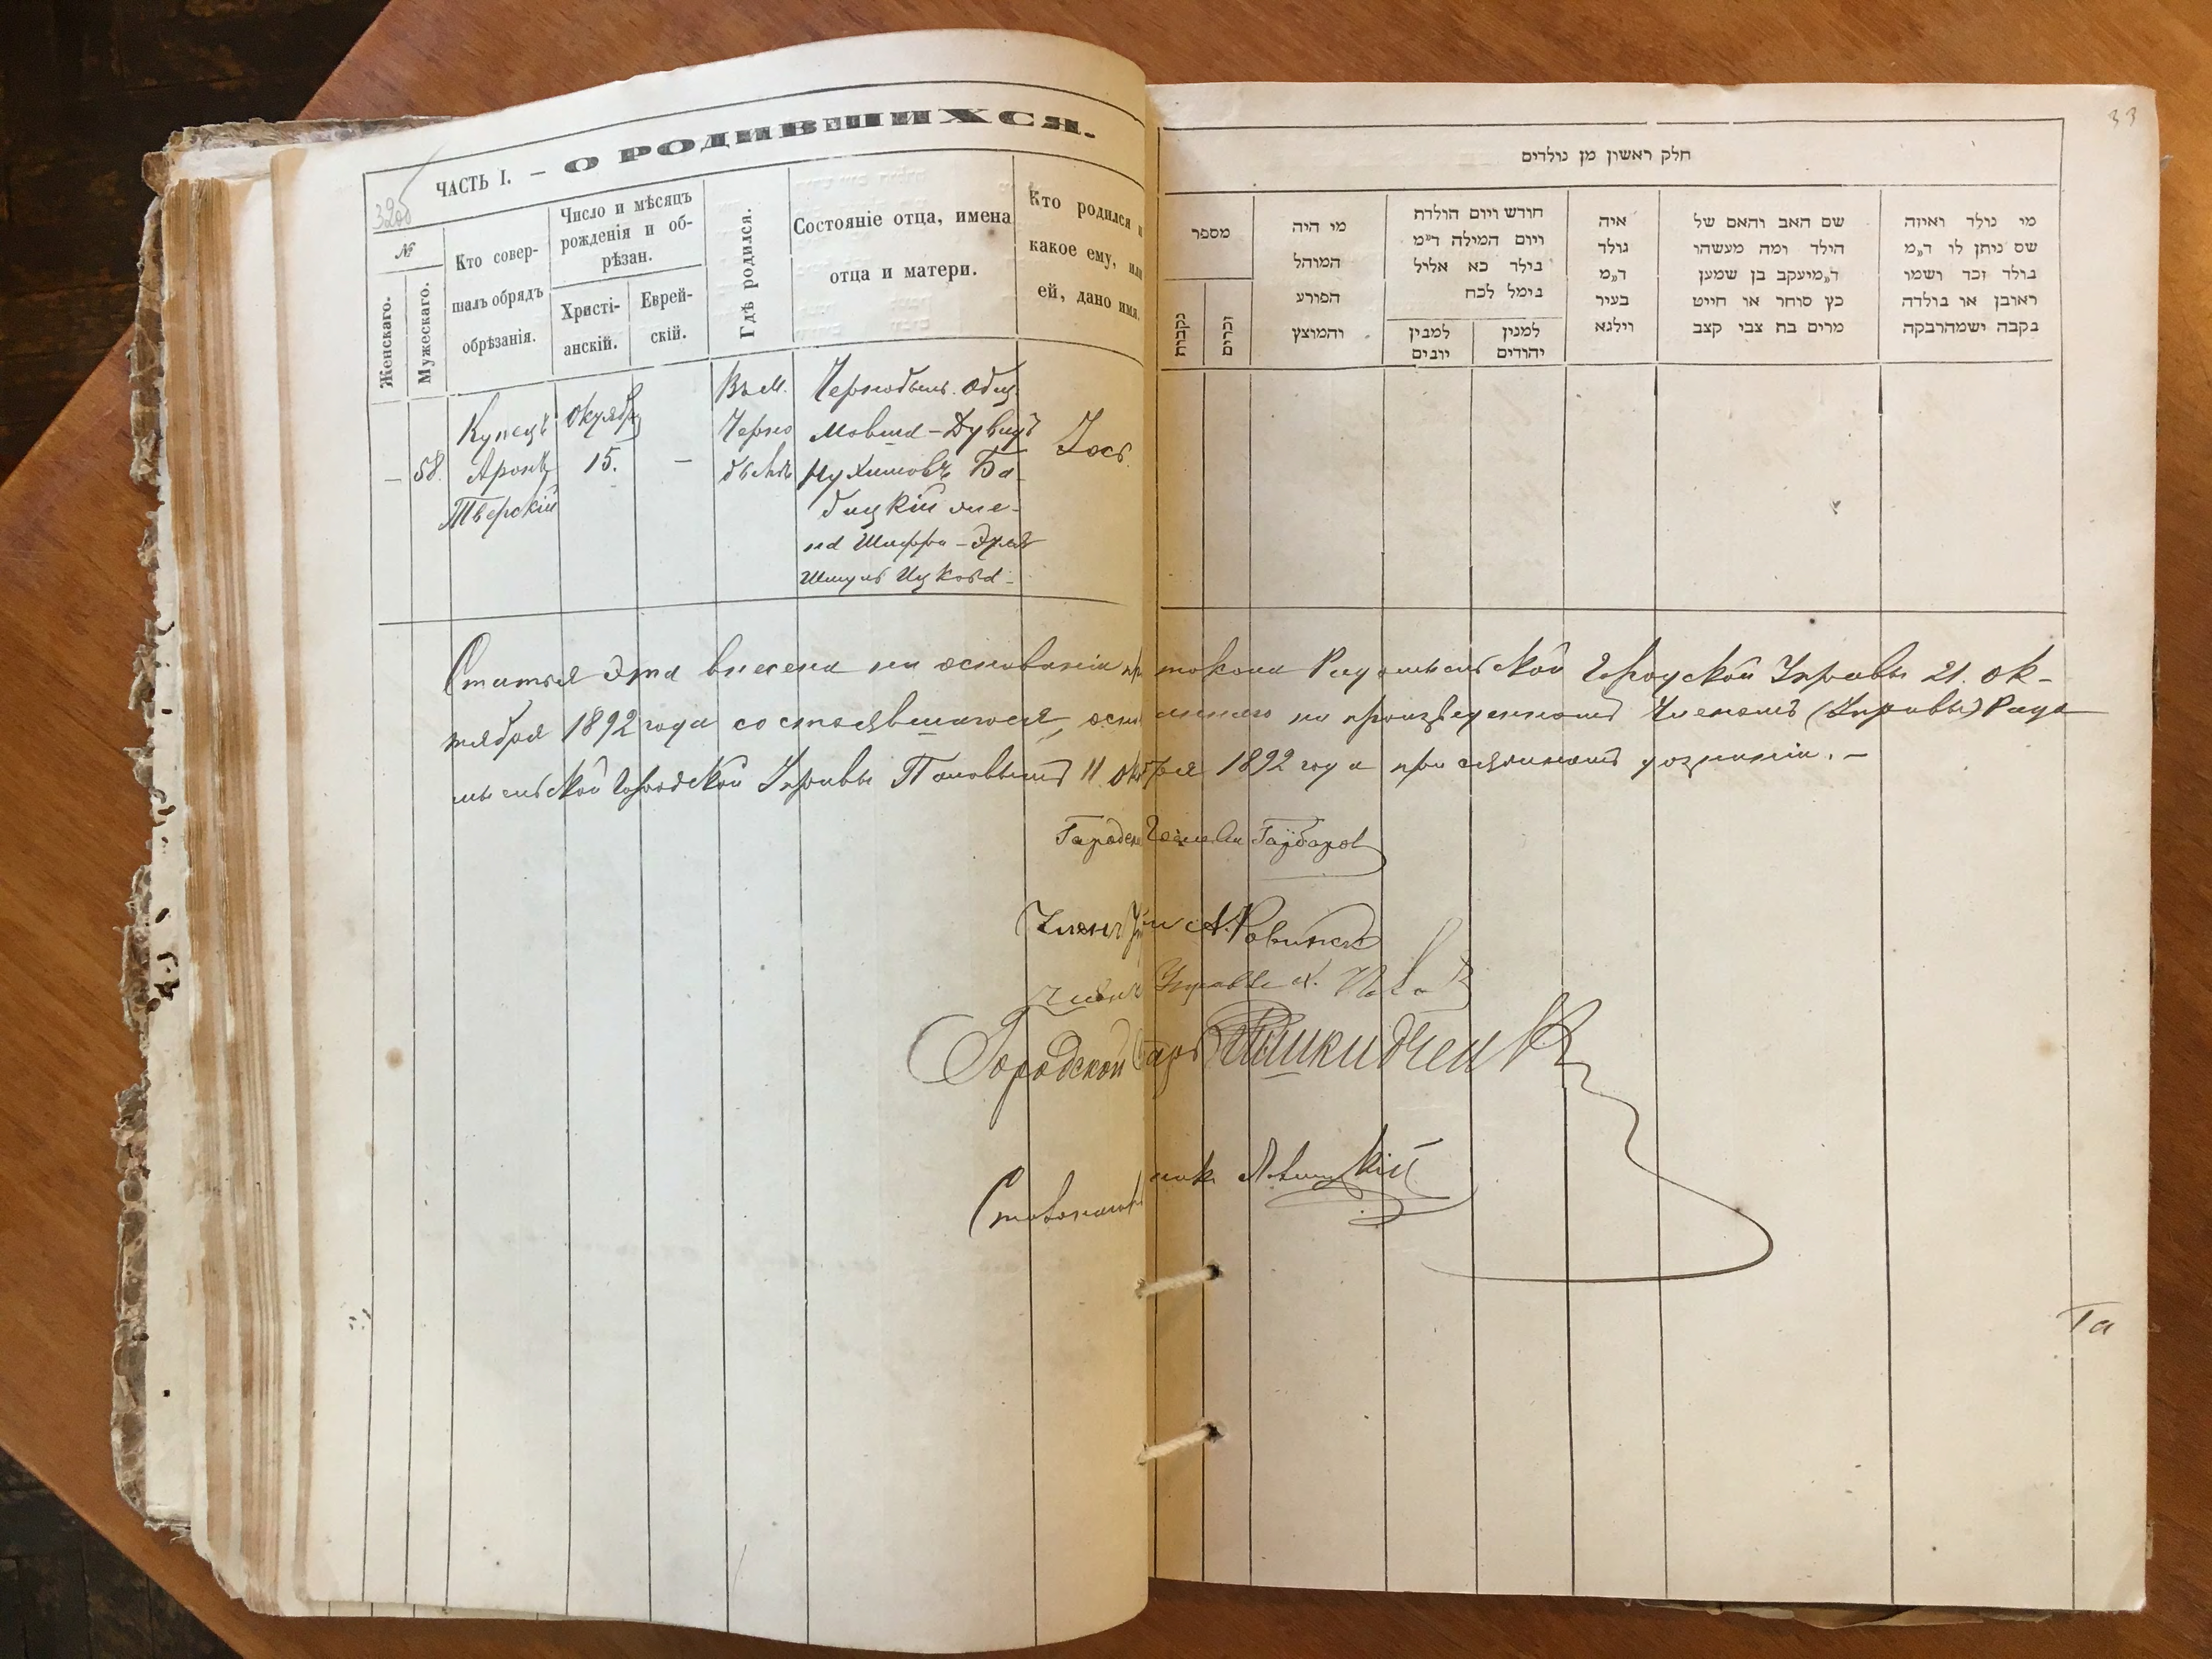 ЧАСТЬ I. – О РОДИВШИХСЯ.
32об
№
Женскаго.
Мужескаго.
Кто совер-
шалъ обрядъ
обрѣзанія.
Число и мѣсяцъ
рожденія и об-
рѣзан.
Христі-
анскій.
Еврей-
скій.
Гдѣ родился.
Состояніе отца, имена
отца и матери.
Кто родился и
какое ему, или
ей, дано имя.
– 58.
Купецъ
Аронъ
Тверскій
Октября
15.
–
Въ м.
Черно
былѣ
Чернобыль. общ.
Мовша-Дувидъ
Нухимовъ Ба-
бицкій же-
на Шифра-
Шмуль Ицкова-
Іось.
33
חלק ראשון מן נולדים
מספר
נקבות
זכרים
מי היה
המוהל
הפורע
והמוצץ
חודש ויום הולדת
ויום המילה ד״מ
בילד כא אליל
בימל לכח
למבין
יובים
למנין
יהודים
איה
נולד
ד״מ
בעיר
וילגא
שם האב והאם של
הילד ומה מעשהו
ד״מיעקב בן שמען
כץ סוחר או חייט
מרים בת צבי קצב
מי נולד ואיזה
שם ניתן לו ד״מ
בולד זכד ושמו
ראובן או בולדה
בקבה ישמהרבקה
Статья эта внесена на основаніи протокола Радомысльской Городской Управы 21. ок-
тября 1892 года состоявшагося, основаннаго на произведенномъ Членомъ (Управы) Радо
мысльской Городской Управы Поповымъ 11 октября 1892 года присяжномъ дознаніи. –
Городской Голова Гайбаров
Членъ Упр А. Ровинскій
Членъ Управы
Городской
Столоначальникъ Левицкій
Га